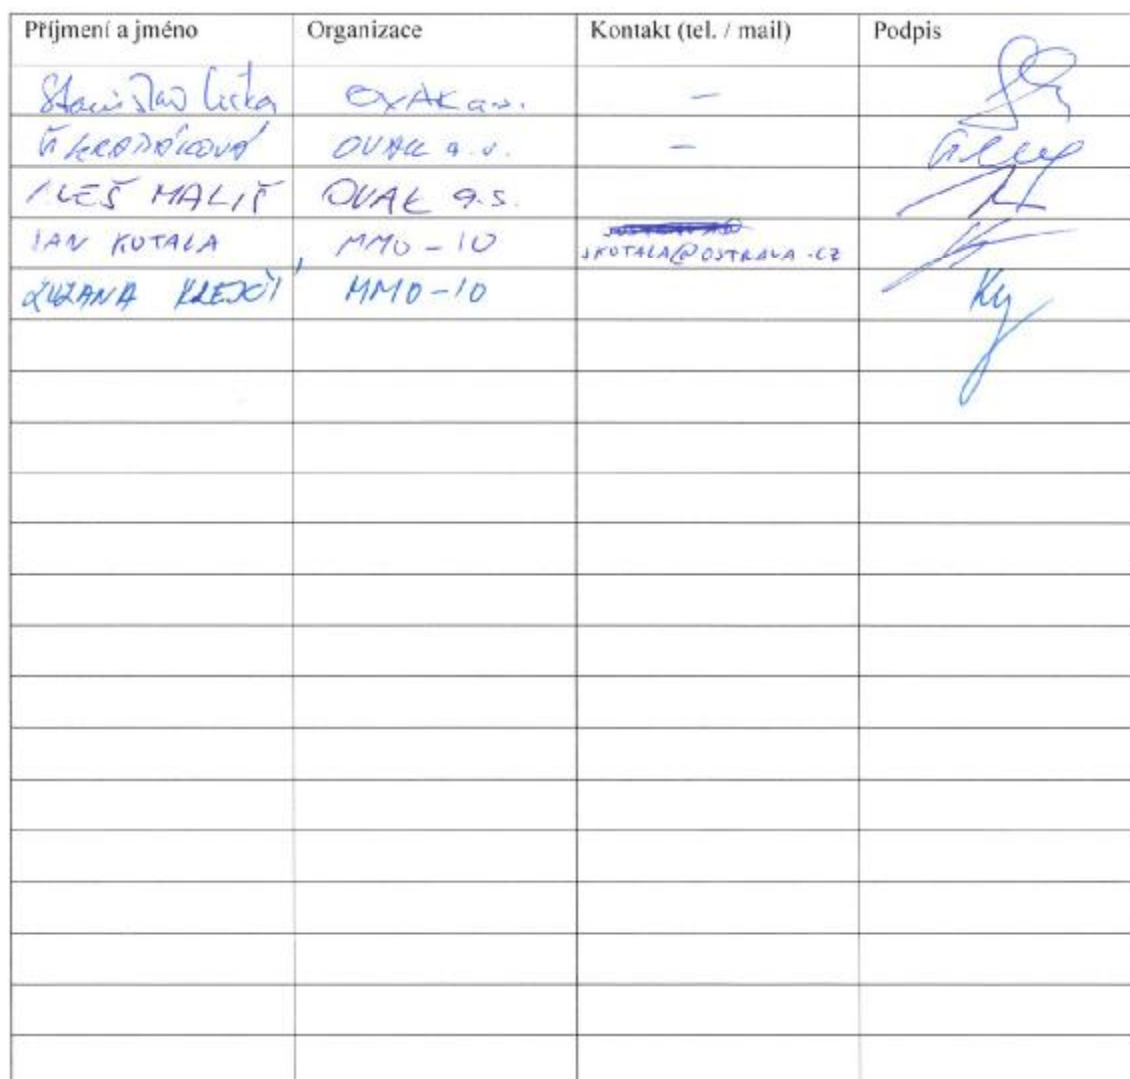 Příjmení a jméno Organizace Kontakt (tel. / mail) Podpis
Stanislav OVAK a.s. -
OVAK a.s. -
ALEŠ MALIŠ OVAK a.s.
JAN KOTALA MMO-IO JKOTALA@OSTRAVA.CZ
ZUZANA KREJČÍ MMO-IO